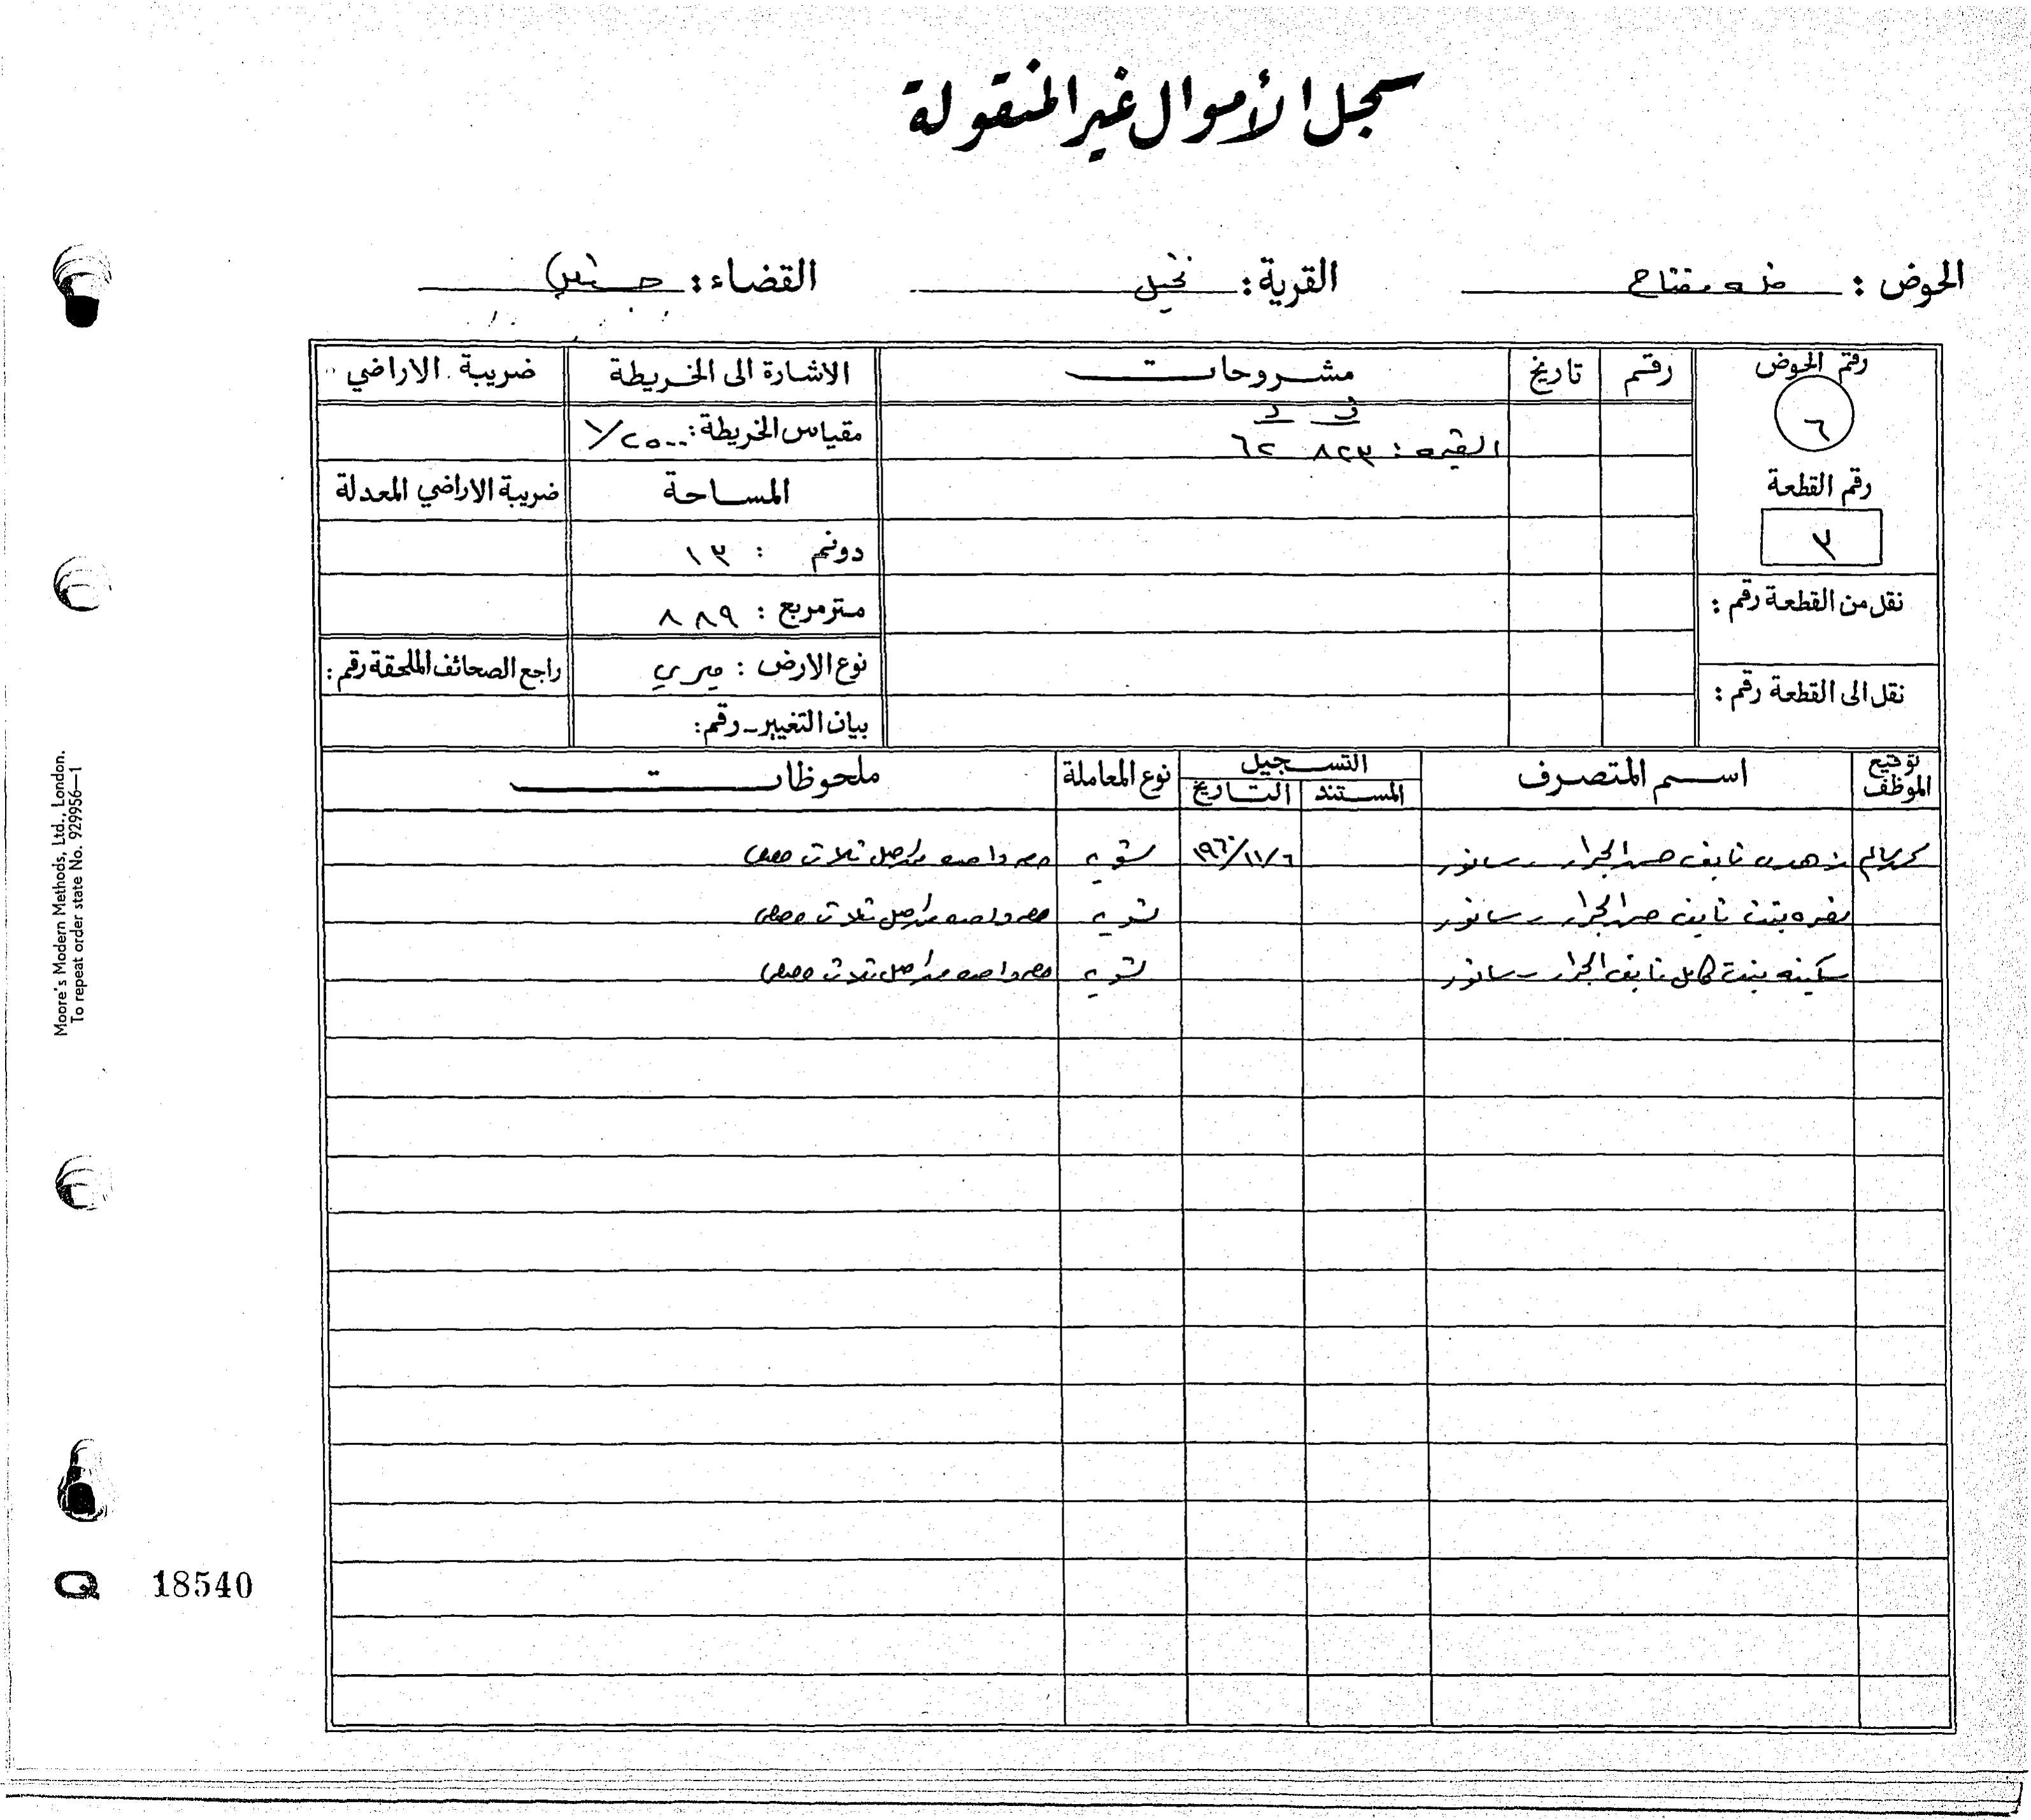 سجل الأموال غير المنقولة
الحوض : مفتاح القرية : نخيل القضاء : جنين
رقم الحوض رقم تاريخ مشروحات الاشارة الى الخريطة ضريبة الاراضي
٦ مقياس الخريطة : ١/٢٥٠٠
ف د
القيمه : ٨٢٣ ٦٢
رقم القطعة المساحة ضريبة الاراضي المعدلة
٣ دونم : ١٣
نقل من القطعة رقم : متر مربع : ٨٨٩
نوع الارض : ميري راجع الصحائف الملحقة رقم :
نقل الى القطعة رقم :
بيان التغيير - رقم :
توقيع الموظف اسم المتصرف التسجيل نوع المعاملة ملحوظات
المستند التاريخ
نايف الجرار - سانور ١٩٦٠/١١/٦ تسويه حصه واحده من اصل ثلاث حصص
بنت نايف الجرار - سانور تسويه حصه واحده من اصل ثلاث حصص
سكينه بنت كامل نايف الجرار - سانور تسويه حصه واحده من اصل ثلاث حصص
Moore's Modern Methods, Ltd., London.
To repeat order state No. 929956—1
Q 18540